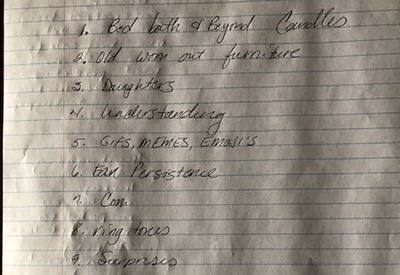 1. Bed bath & Beyond Candles
2. Old worn out furniture
3. Daughters
4. Understanding
5. GIFS, MEMES, EMOJI'S
6. Persistence
7.
8. ring tones
9. Surprises